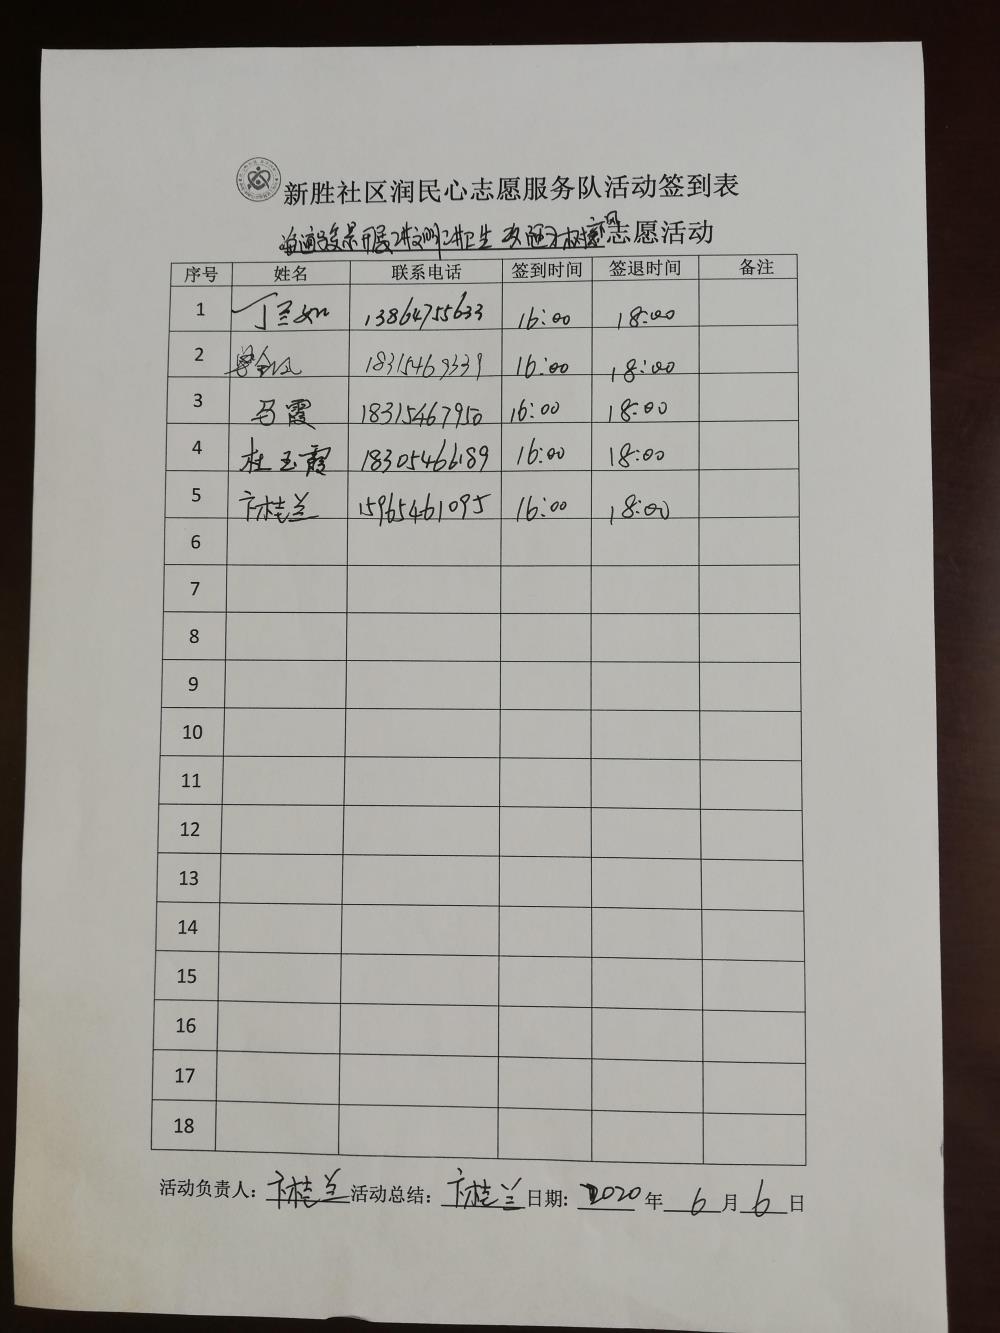 新胜社区润民心志愿服务队活动签到表
开展讲文明讲卫生 志愿活动
序号 姓名 联系电话 签到时间 签退时间 备注
1 丁兰如 13864755633 16:00 18:00
2 18315469339 16:00 18:00
3 马霞 18315467950 16:00 18:00
4 杜玉霞 18305466189 16:00 18:00
5 卞桂兰 15965461095 16:00 18:00
6
7
8
9
10
11
12
13
14
15
16
17
18
活动负责人: 卞桂兰 活动总结: 卞桂兰 日期: 2020 年 6 月 6 日